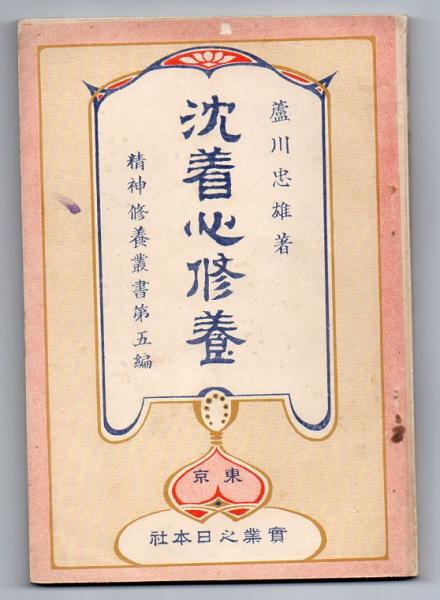 蘆川忠雄著
沈着心修養
精神修養叢書第五編
東京
實業之日本社